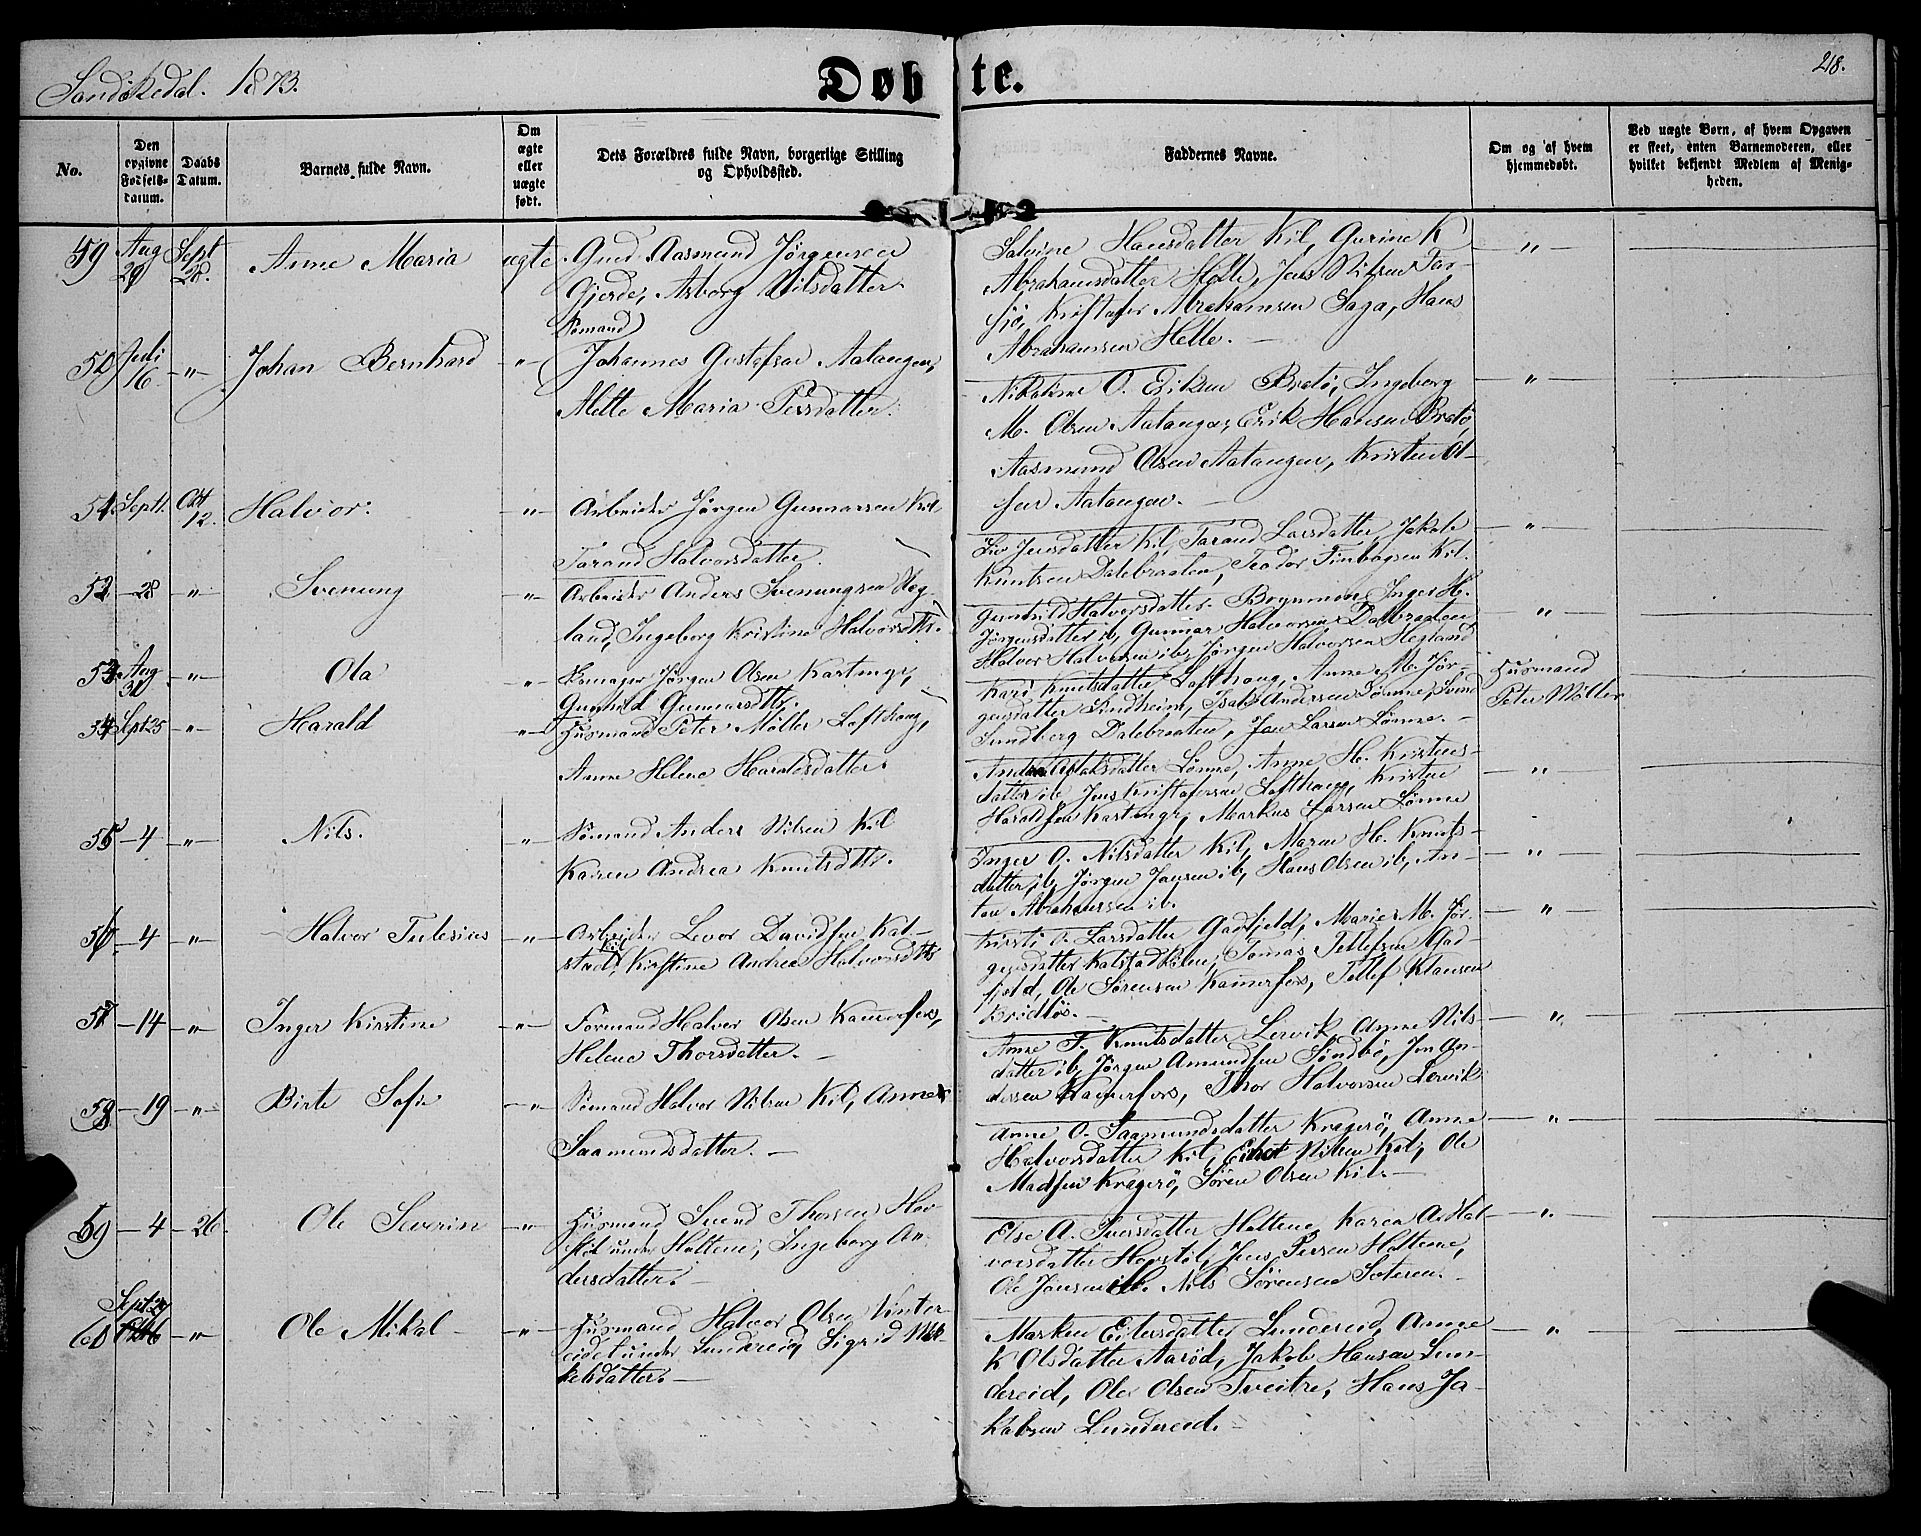 Sandøkedal. 1873.
Døbte.
218.
No.
Den opgivne Fødsels-datum.
Daabs Datum.
Barnets fulde Navn.
Om ægte eller uægte født.
Dets Forældres fulde Navn, borgerlige Stilling og Opholdssted.
Faddernes Navne.
Om og af hvem hjemmedøbt.
Ved uægte Børn, af hvem Opgaven er skeet, enten Barnemoderen, eller hvilket bekjendt Medlem af Menigheden.
49 Aug 29 Sept 28. Anne Maria ægte Gmd. Aasmund Jørgensen
Gjerde, Asborg Nilsdatter.
Hansdatter Kil, Gurine K
Abrahamsdatter Helle, Jens Nilsen Far-
sjø, Kristafer Abrahamsen Saga, Hans
Abrahamsen Helle. —
50 Juli 16 " Johan Bernhard " Sømand
Johannes Gustafsen Aatangen,
Mette Maria Persdatter.
Nikoline O. Eriksen Bretø, Ingeborg
M. Olsen Aatangen, Erik Hansen Bretø,
Aasmund Olsen Aatangen, Kristen Ol-
sen Aatangen. —
51 Sept 1. Oct 12. Halvor. " Arbeider Jørgen Gunnarsen Kil
Tarand Halvorsdatter.
Liv Jensdatter Kil, Tarand Larsdatter, Jakob
Knutsen Dalebraaten, Teodor Finbogsen Kil.
52 28 " Svenung " Arbeider Anders Svenungsen Heg-
land, Ingeborg Kristine Halvorsdtr.
Gunhild Halvorsdatter Inger H.
Jørgensdatter ib, Gunnar Halvorsen Dalebraaten
Halvor Halvorsen ib, Jørgen Halvorsen Hegland
53 Aug 31 " Ola " Jørgen Olsen Kastinge,
Gunhild Gunnarsdtr.
Kari Knutsdatter Lofthaug, Anne M. Jør-
gensdatter Lindheim, Isak Andersen Lønne, Svend
Sundberg Dalebraaten, Jan Larsen Lønne. —
Husmand
Peter Møller
54 Sept 25 " Harald " Husmand Peter Møller Lofthaug,
Anne Helene Haraldsdatter.
Andrea Lønne, Anne H. Kristens-
datter ib, Jens Kristafersen Lofthaug, Kristen
Haraldsen Kastinge, Markus Larsen Lønne
55 4 " Nils. " Sømand Anders Nilsen Kil
Karen Andrea Knutsdtr.
Inger O. Nilsdatter Kil, Maren H. Knuts-
datter ib, Jørgen Jansen ib, Hans Olsen ib, An-
ton Abrahamsen ib.
56 4 " Halvor Tulesius " Arbeider Levor Davidsen Kal-
stad Kil, Kirstine Andrea Halvorsdtr
Kirsti O. Larsdatter Gadfjeld, Marie M. Jør-
gensdatter Kalstadkilen, Tomas Tellefsen Gad-
fjeld, Ole Sørensen Kamerfos, Tellef Klausen
57 14 " Inger Kirstine " Formand Halvor Olsen Kamerfos,
Helene Thorsdatter. —
Anne T. Knutsdatter Lervik, Anne Nils-
datter ib, Jørgen Amundsen Søndbø, Jon An-
dersen Kamerfos, Thor Halvorsen Lervik
58 19 " Birte Sofie " Sømand Halvor Nilsen Kil, Anne
Saamundsdatter. —
Anne O. Saamundsdatter Kragerø, Anne
Halvorsdatter Kil, Nilsen Kil, Ole
Madsen Kragerø, Søren Olsen Kil. —
59 4 26. Ole Severin " Husmand Svend Thorsen Hav-
støl under Holtene, Ingeborg An-
dersdatter. —
Else A. Iversdatter Holtene, Karen A. Hal-
vorsdatter Havstøl, Jens Persen Holtene,
Ole Jønsen ib. Nils Sørensen
60 Sept 29 " Ole Mikal " Husmand Halvor Olsen Vinter-
eidet under Lundereid, Sigrid Mik-
kelsdatter. —
Maren Eilersdatter Lundereid, Anne
K Olsdatter Aarød, Jakob Hansen Lun-
dereid, Ole Olsen Tveitre, Hans Ja-
kobsen Lundereid. —